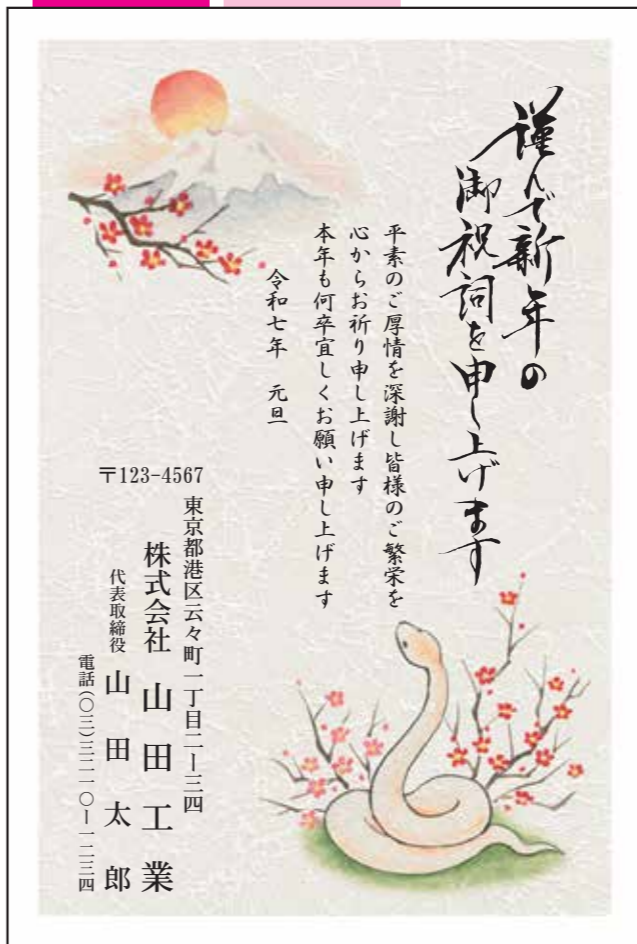 謹んで新年の
御祝詞を申し上げます
平素のご厚情を深謝し皆様のご繁栄を
心からお祈り申し上げます
本年も何卒宜しくお願い申し上げます
令和七年　元旦
〒123-4567
東京都港区云々町一丁目二ー三四
株式会社 山田工業
代表取締役 山田太郎
電話(〇三)三二一〇ー一二三四